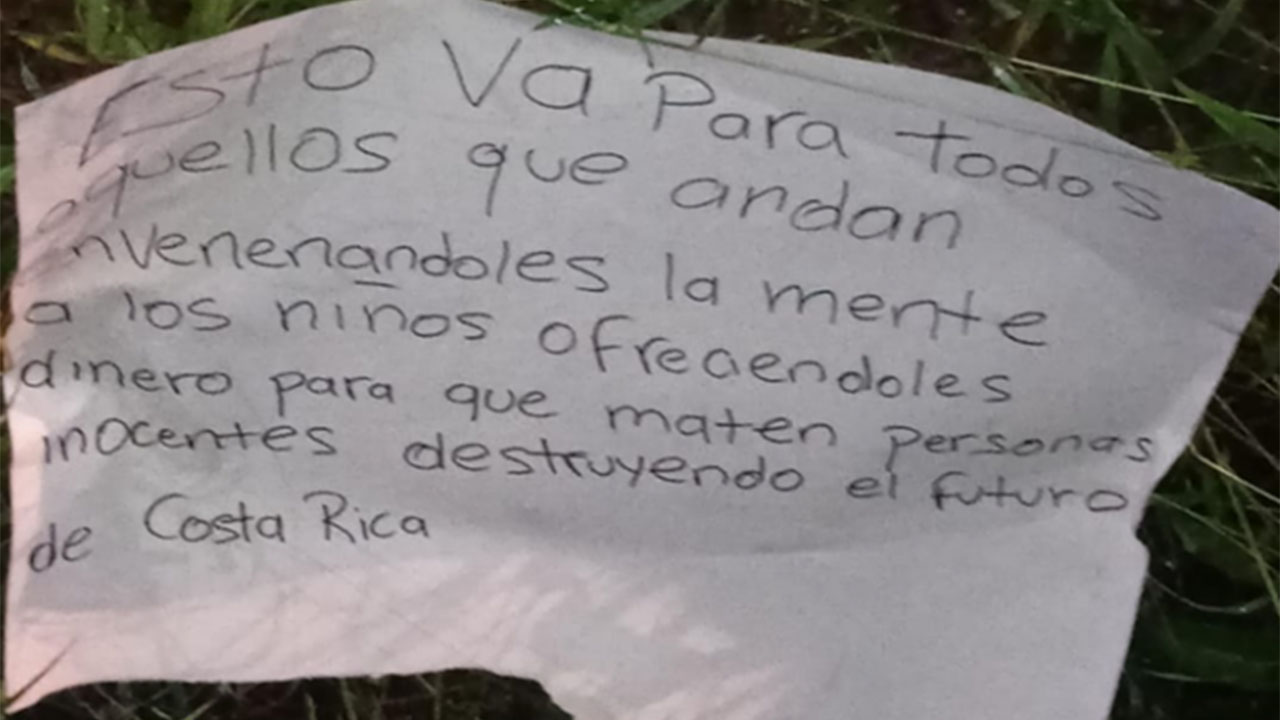 Esto va para todos
aquellos que andan
envenenandoles la mente
a los niños ofreciendoles
dinero para que maten personas
inocentes destruyendo el futuro
de Costa Rica